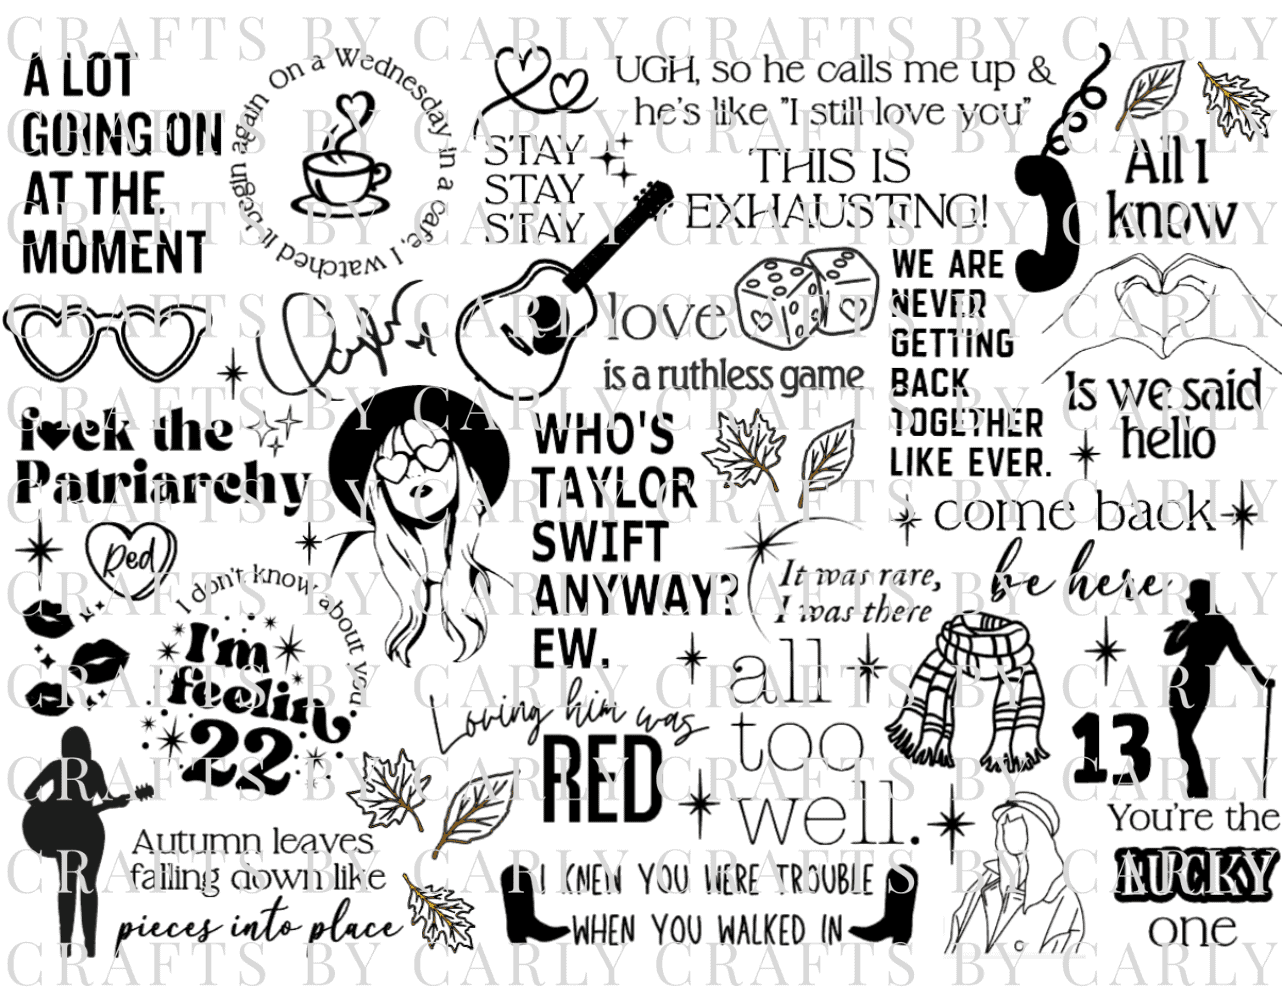 CRAFTS BY CARLY CRAFTS BY CARLY
A LOT
GOING ON
AT THE
MOMENT
On a Wednesday in a cafe, I watched it begin again
STAY
STAY
STAY
UGH, so he calls me up &
he's like "I still love you"
THIS IS
EXHAUSTING!
All I
know
Is we said
hello
love
is a ruthless game
WE ARE
NEVER
GETTING
BACK
TOGETHER
LIKE EVER.
Taylor
f♥ck the
Patriarchy
WHO'S
TAYLOR
SWIFT
ANYWAY?
EW.
come back
be here
Red
I don't know about you
I'm
feelin
22
It was rare,
I was there
all
too
well.
Loving him was
RED
13
Autumn leaves
falling down like
pieces into place
I KNEW YOU WERE TROUBLE
WHEN YOU WALKED IN
You're the
LUCKY
one